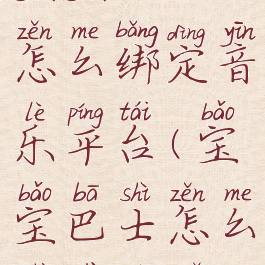 zěn me bǎng dìng yīn
怎么绑定音
lè píng tái bǎo
乐平台(宝
bǎo bā shì zěn me
宝巴士怎么